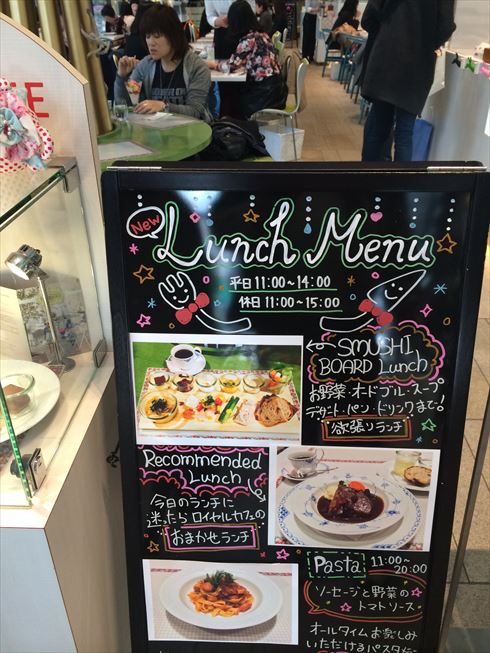 New
Lunch Menu
平日 11:00~14:00
休日 11:00~15:00
SMUSHI
BOARD Lunch
お野菜・オードブル・スープ
デザート・パン・ドリンクまで!
欲張りランチ
Recommended
Lunch
今日のランチに
迷ったらロイヤルカフェの
おまかせランチ
Pasta 11:00~
20:00
ソーセージと野菜の
トマトソース
オールタイムお楽しみ
いただけるパスタ